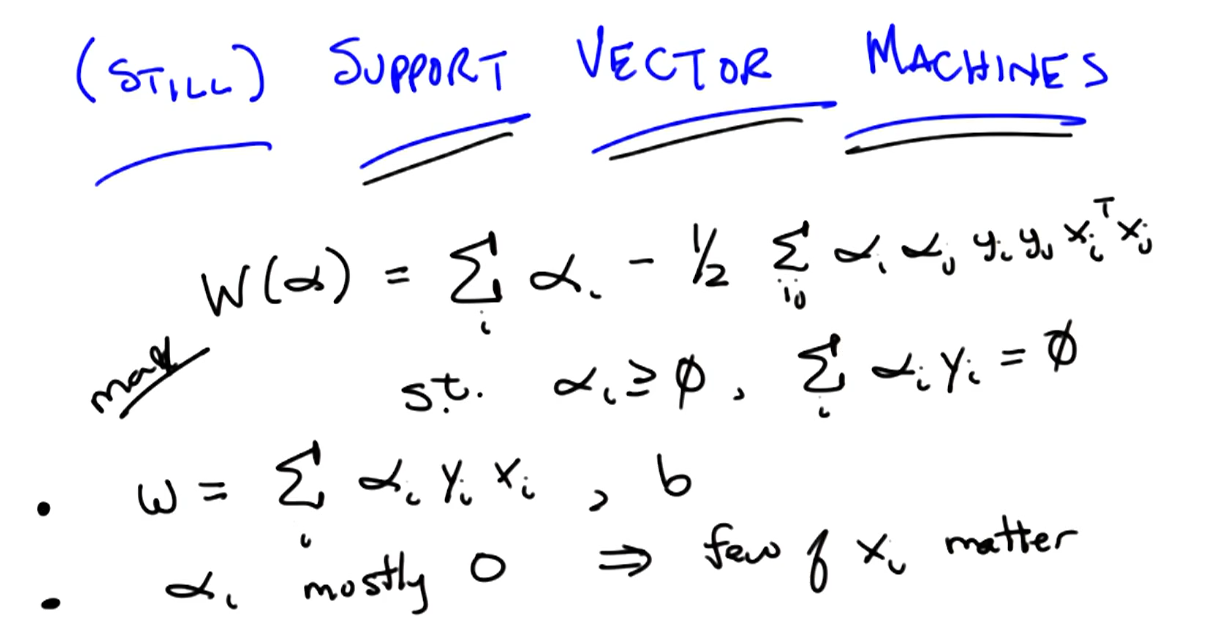 (STILL) SUPPORT VECTOR MACHINES
W(α) = Σ_i α_i - 1/2 Σ_ij α_i α_j y_i y_j x_i^T x_j
max
s.t. α_i ≥ ∅, Σ_i α_i y_i = ∅
• w = Σ_i α_i y_i x_i , b
• α_i mostly 0 ⇒ few of x_i matter